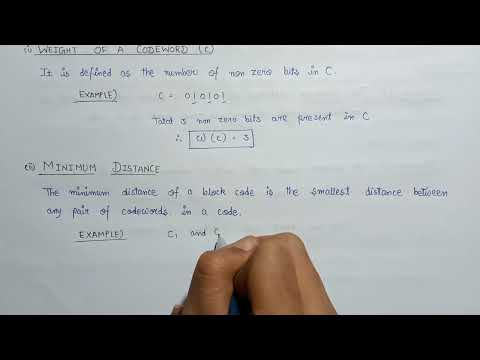 (i) WEIGHT OF A CODEWORD (C)
It is defined as the number of non zero bits in C.
EXAMPLE) C = 010101
Total 3 non zero bits are present in C
∴ W (C) = 3
(ii) MINIMUM DISTANCE
The minimum distance of a block code is the smallest distance between
any pair of codewords in a code.
EXAMPLE) C1 and C